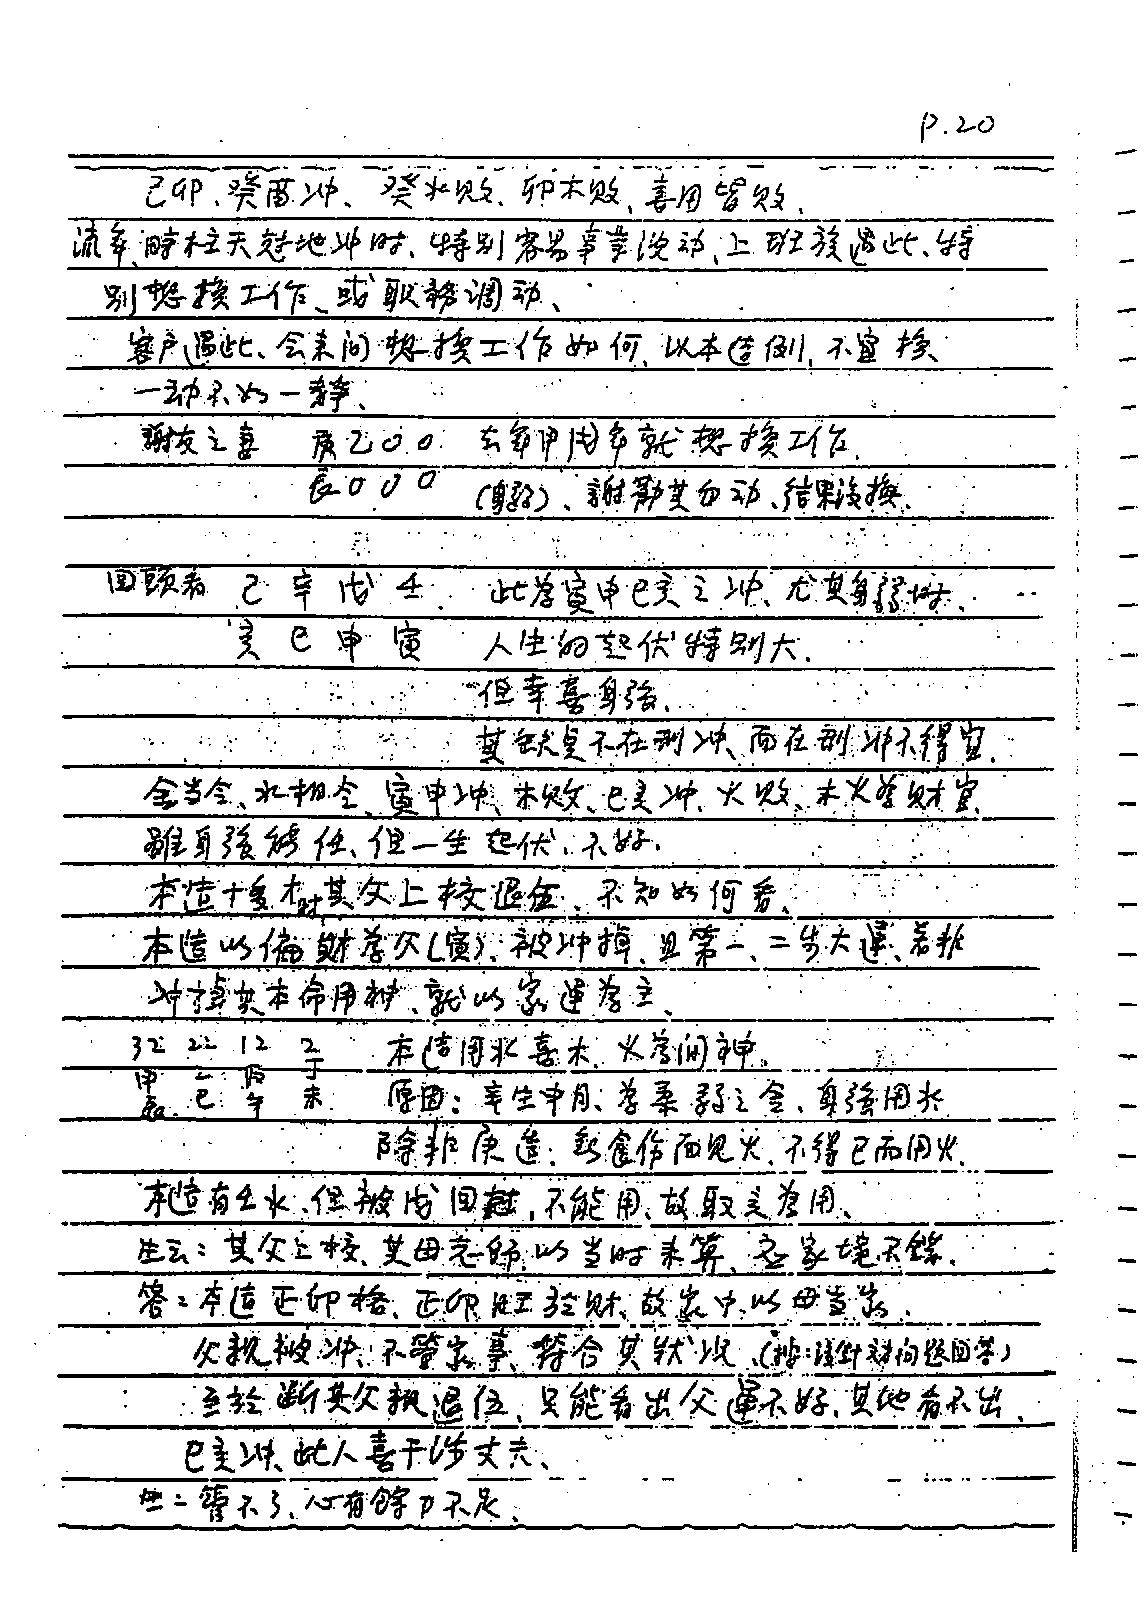 P.20
己卯、癸酉冲、癸水败、卯木败、喜用皆败、
流年、時柱天尅地冲时、特别容易事業波动、上班族遇此、特
别想换工作、或职務调动、
客户遇此、会来问想换工作如何、以本造例、不宜换
一动不如一静、
謝友之妻 庚乙〇〇 去年甲戌年就想换工作、
辰〇〇〇 (身弱)、謝勸其勿动、结果没换、
回頭看 己辛戊壬 此為寅申巳亥之冲、尤其身弱时、
亥巳申寅 人生的起伏特别大、
但幸喜身強、
其缺點不在刑冲、而在刑冲不得宜、
金当令、水相令、寅申冲、木败、巳亥冲、火败、木火為財官、
雖身強能任、但一生起伏、不好、
本造十多才时其父上校退伍、不知如何看、
本造以偏財為父(寅)、被冲掉、且第一、二步大運、若非
冲掉其本命用神、就以家運為主、
32 22 12 2 本造用水喜木、火為闲神、
甲乙丙丁
辰巳午未 原因：辛生申月、為柔弱之金、身強用水
除非庚造：無食伤而见火、不得已而用火、
本造有壬水、但被戊回尅、不能用、故取亥為用、
生云：其父上校、其母老師、以当时来算、应家境不錯、
答：本造正印格、正印旺於財、故家中以母当家、
父親被冲、不管家事、符合其狀况、(按：該針对问题回答)
至於断其父親退伍、只能看出父運不好、其他看不出、
巳亥冲、此人喜干涉丈夫、
但：管不了、心有餘力不足、